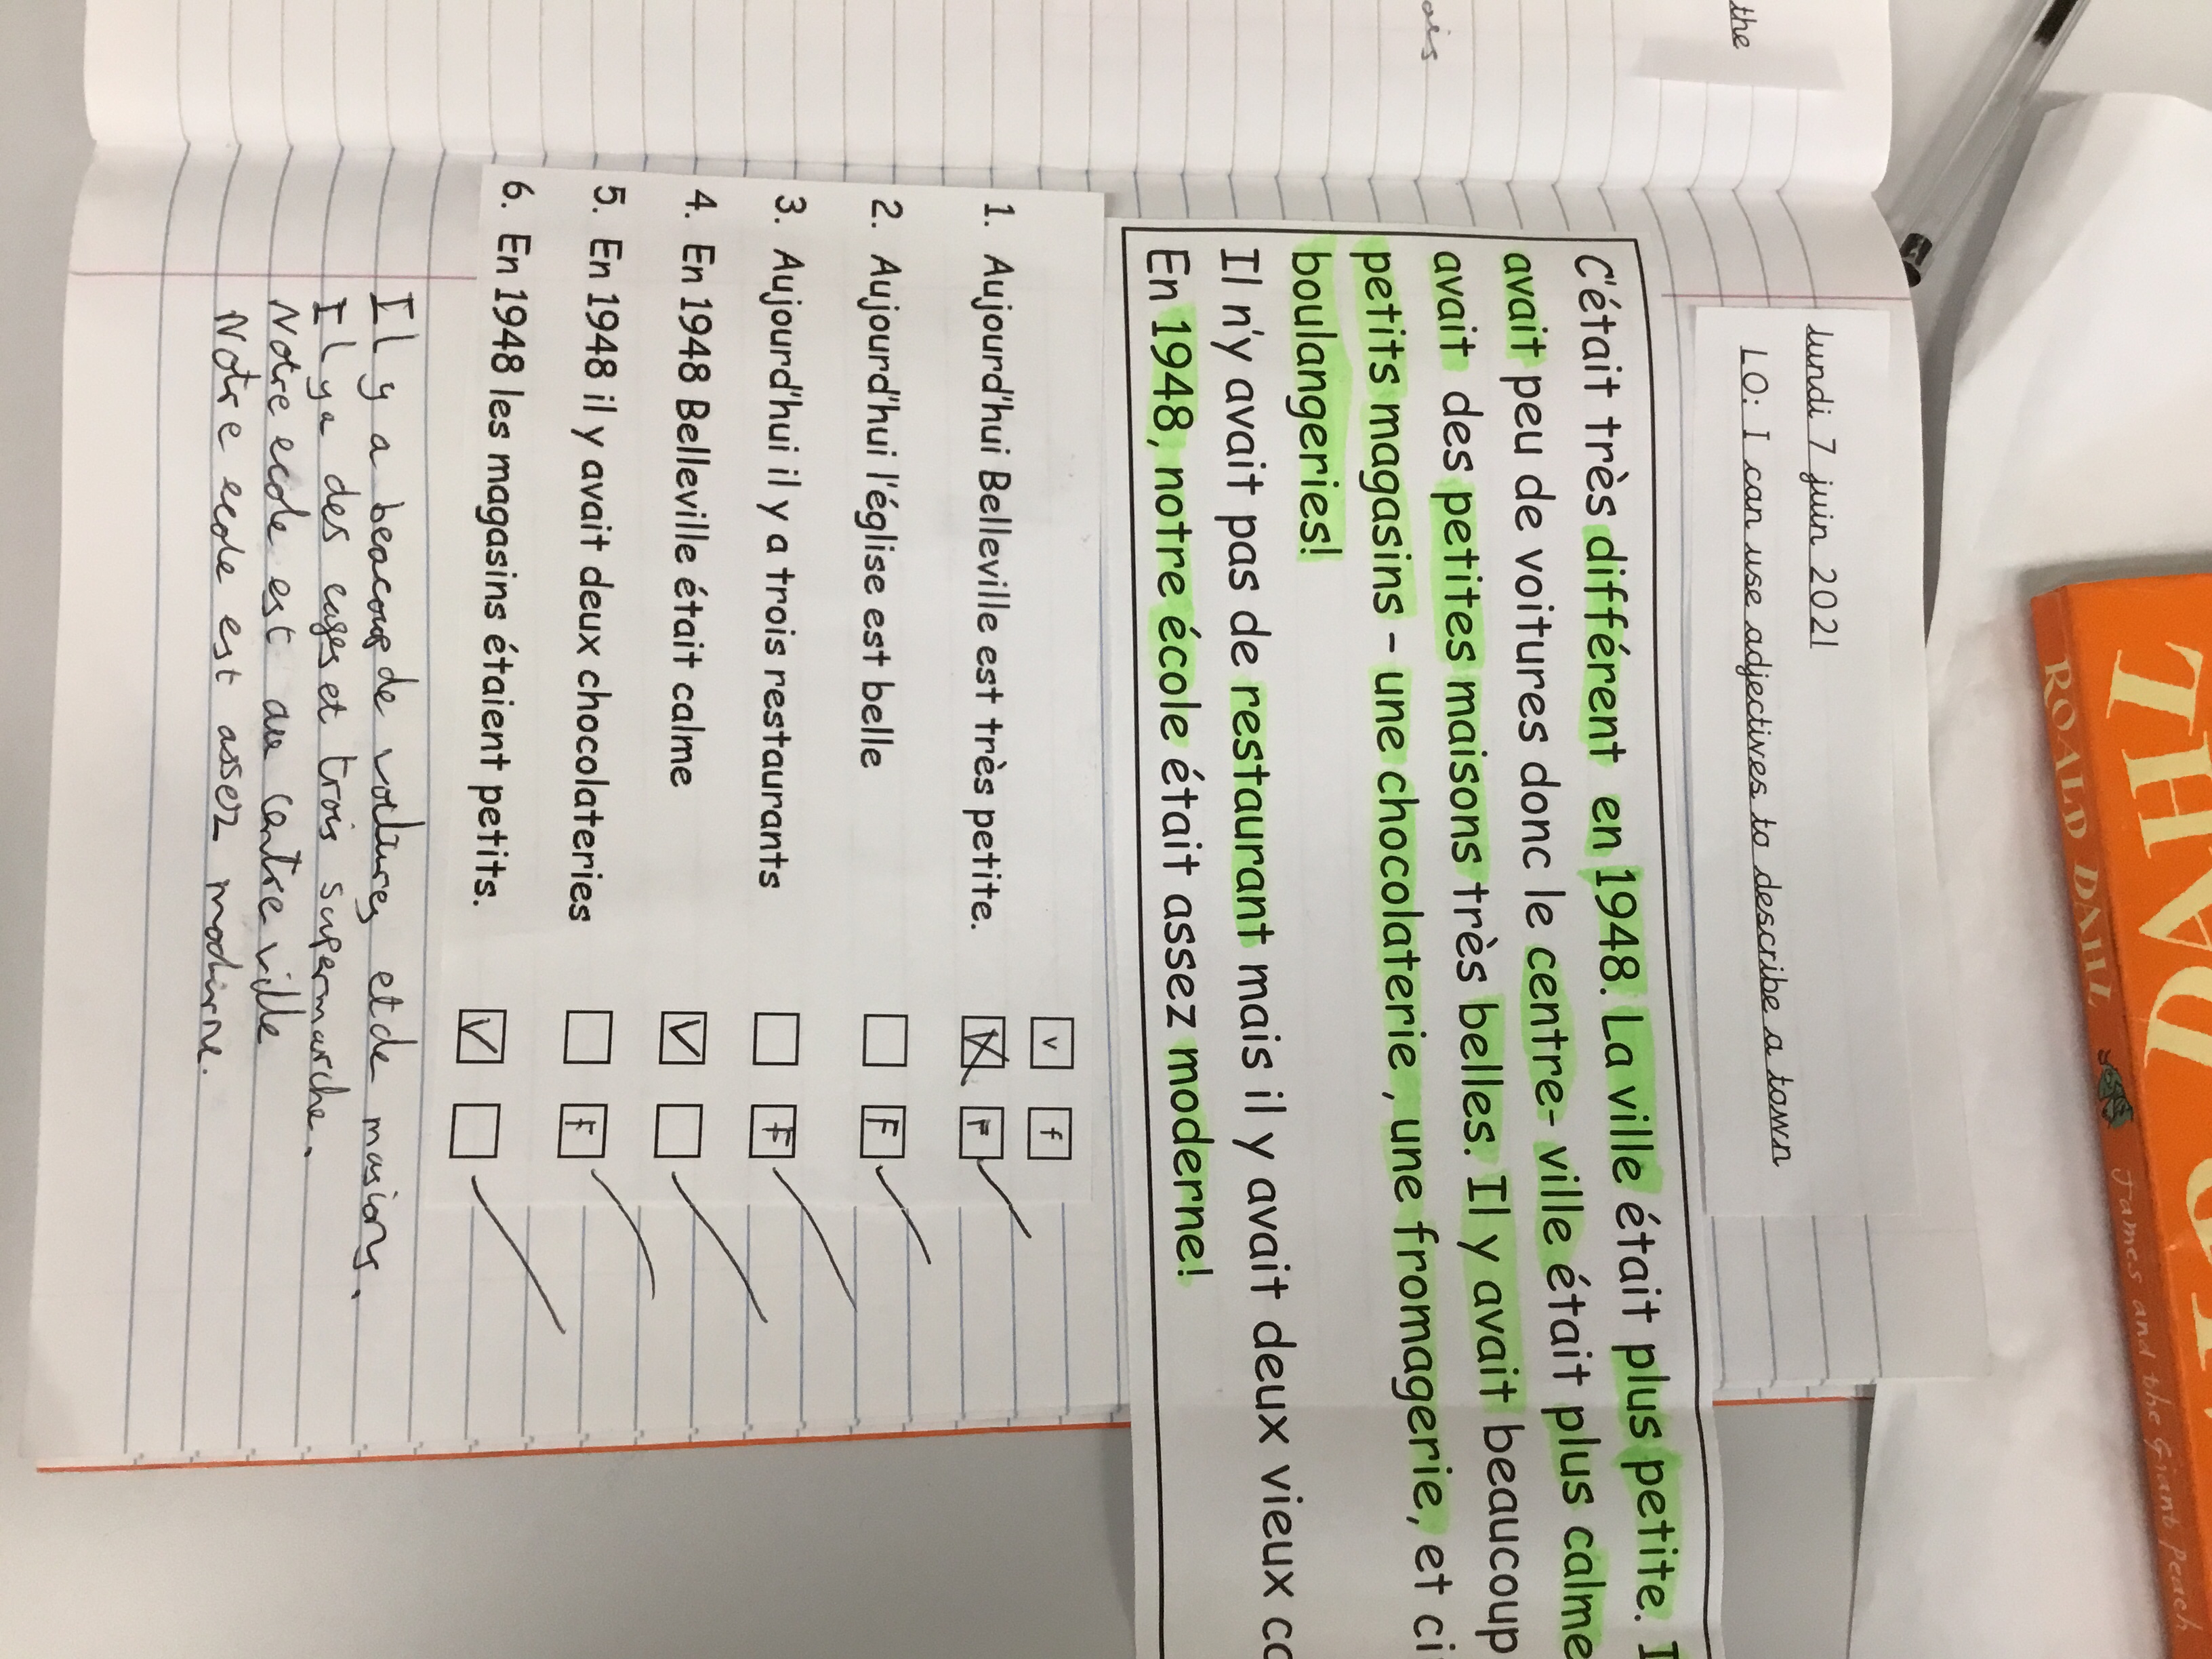 the
ois
lundi 7 juin 2021
LO: I can use adjectives to describe a town
C'était très différent en 1948. La ville était plus petite. I
avait peu de voitures donc le centre-ville était plus calme
avait des petites maisons très belles. Il y avait beaucoup
petits magasins - une chocolaterie, une fromagerie, et ci
boulangeries!
Il n'y avait pas de restaurant mais il y avait deux vieux ca
En 1948, notre école était assez moderne!
v f
1. Aujourd'hui Belleville est très petite. F
2. Aujourd'hui l'église est belle F
3. Aujourd'hui il y a trois restaurants F
4. En 1948 Belleville était calme V
5. En 1948 il y avait deux chocolateries F
6. En 1948 les magasins étaient petits. V
Il y a beacoup de voitures et de masions.
Il ya des cages et trois supermarche.
Notre ecole est au centre ville
Notre ecole est assez moderne.
ROALD DAHL
James and the Giant Peach